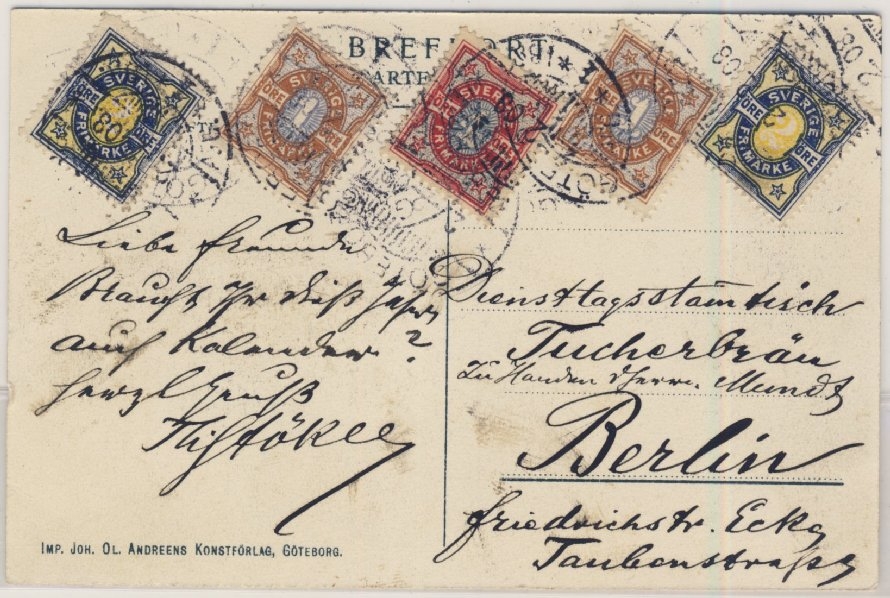 BREFKORT
SVERIGE
FRIMÄRKE
ÖRE
ÖRE
SVERIGE
FRIMÄRKE
ÖRE
1
SVERIGE
FRIMÄRKE
SVERIGE
FRIMÄRKE
ÖRE
1
SVERIGE
FRIMÄRKE
ÖRE
ÖRE
Liebe Freunde
Braucht Ihr dieß Jahr
auch Kalender?
Herzl Gruß
Dienstagsstamtisch
Tucherbräu
Zu Handen Herrn Mundt
Berlin
Friedrichstr. Ecke
Taubenstraße
IMP. JOH. OL. ANDREENS KONSTFÖRLAG, GÖTEBORG.